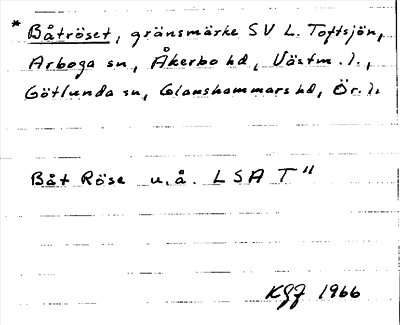 * Båtröset, gränsmärke SV L. Toftsjön,
Arboga sn, Åkerbo hd, Västm. l.,
Götlunda sn, Glanshammars hd, Ör. l.
Båt Röse u.å. LSA T"
KGJ 1966